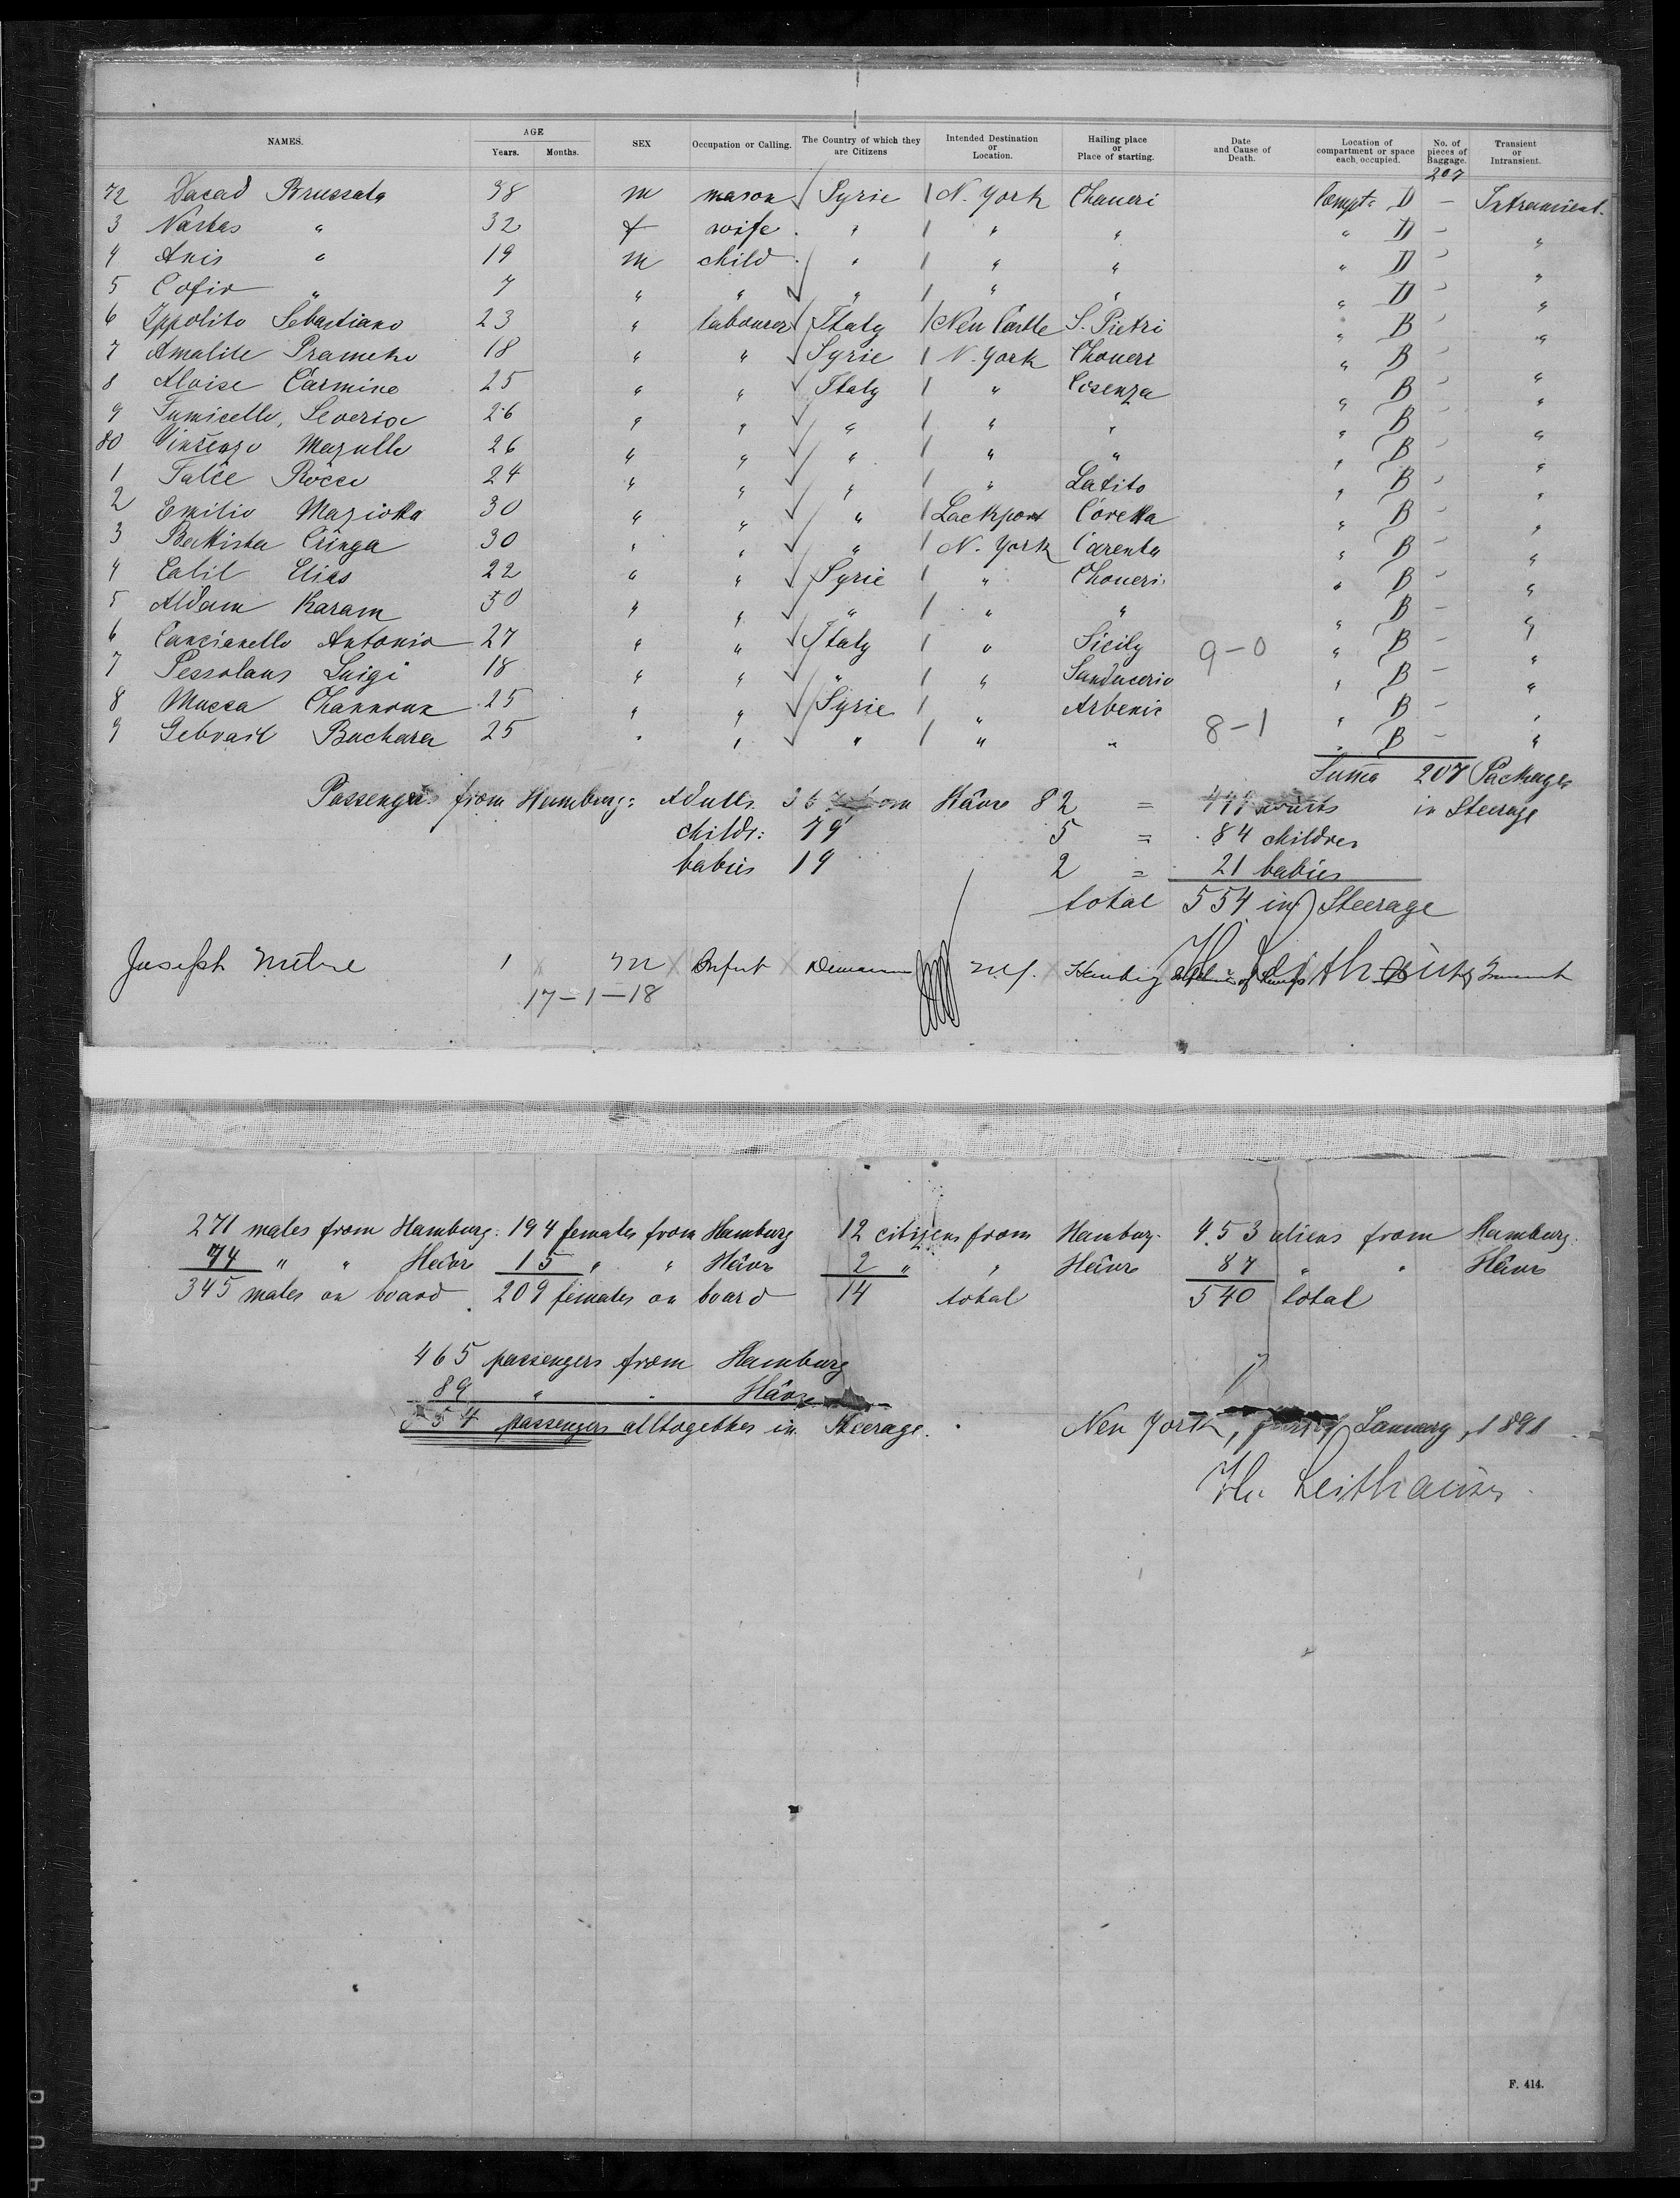 NAMES. AGE Years. Months. SEX Occupation or Calling. The Country of which they are Citizens Intended Destination or Location. Hailing place or Place of starting. Date and Cause of Death. Location of compartment or space each occupied. No. of pieces of Baggage. Transient or Intransient.
207
72 Dacad Brussata 38 m mason Syrie N. York Choueri Compt. D — Intransient.
3 Narbas " 32 f wife " " " " D — "
4 Anis " 19 m child " " " " D — "
5 Cofir " 7 " " " " " " D — "
6 Ippolito Sebastiano 23 " labourer Italy New Castle S. Pietri " B — "
7 Amalite Prameho 18 " " Syrie N. York Choueri " B — "
8 Aloise Carmine 25 " " Italy " Cosenza " B — "
9 Fumicello, Severior 26 " " " " " " B — "
80 Vinsenzo Mazulle 26 " " " " " " B — "
1 Falce Rocco 24 " " " " Latito " B — "
2 Emilio Maziotta 30 " " " Lackport Coretta " B — "
3 Battista Cringa 30 " " " N. York Carenta " B — "
4 Calil Elias 22 " " Syrie " Choueri " B — "
5 Aldam Karam 30 " " " " " " B — "
6 Cancianello Antonio 27 " " Italy " Sicily 9-0 " B — "
7 Pessolans Luigi 18 " " " " Sanducerio " B — "
8 Mussa Channoux 25 " " Syrie " Arbenie " B — "
9 Gebrail Buchara 25 " " " " " 8-1 " B — "
Suma 207 Packages
Passengers from Hamburg: Adults 367 from Hâvre 82 = 449 adults in Steerage
childr: 79 5 = 84 children
babies 19 2 = 21 babies
total 554 in Steerage
Joseph 1 m Infant N.Y. Hambg
17-1-18
271 males from Hamburg. 194 females from Hamburg 12 citizens from Hamburg. 453 aliens from Hamburg.
74 " " Hâvre 15 " " Hâvre 2 " " Hâvre 87 " " Hâvre
345 males on board 209 females on board 14 total 540 total
465 passengers from Hamburg
89 " " Hâvre
554 passengers alltogether in Steerage.
New York, January, 1891
Leithäuser
F. 414.